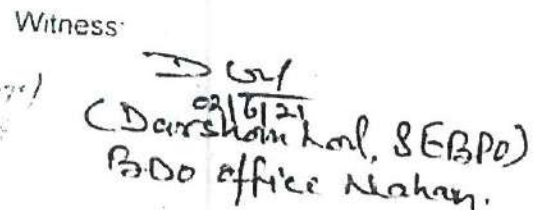 Witness:
02/6/21
(Darshan Lal, SEBPO)
BDO office Nahan.